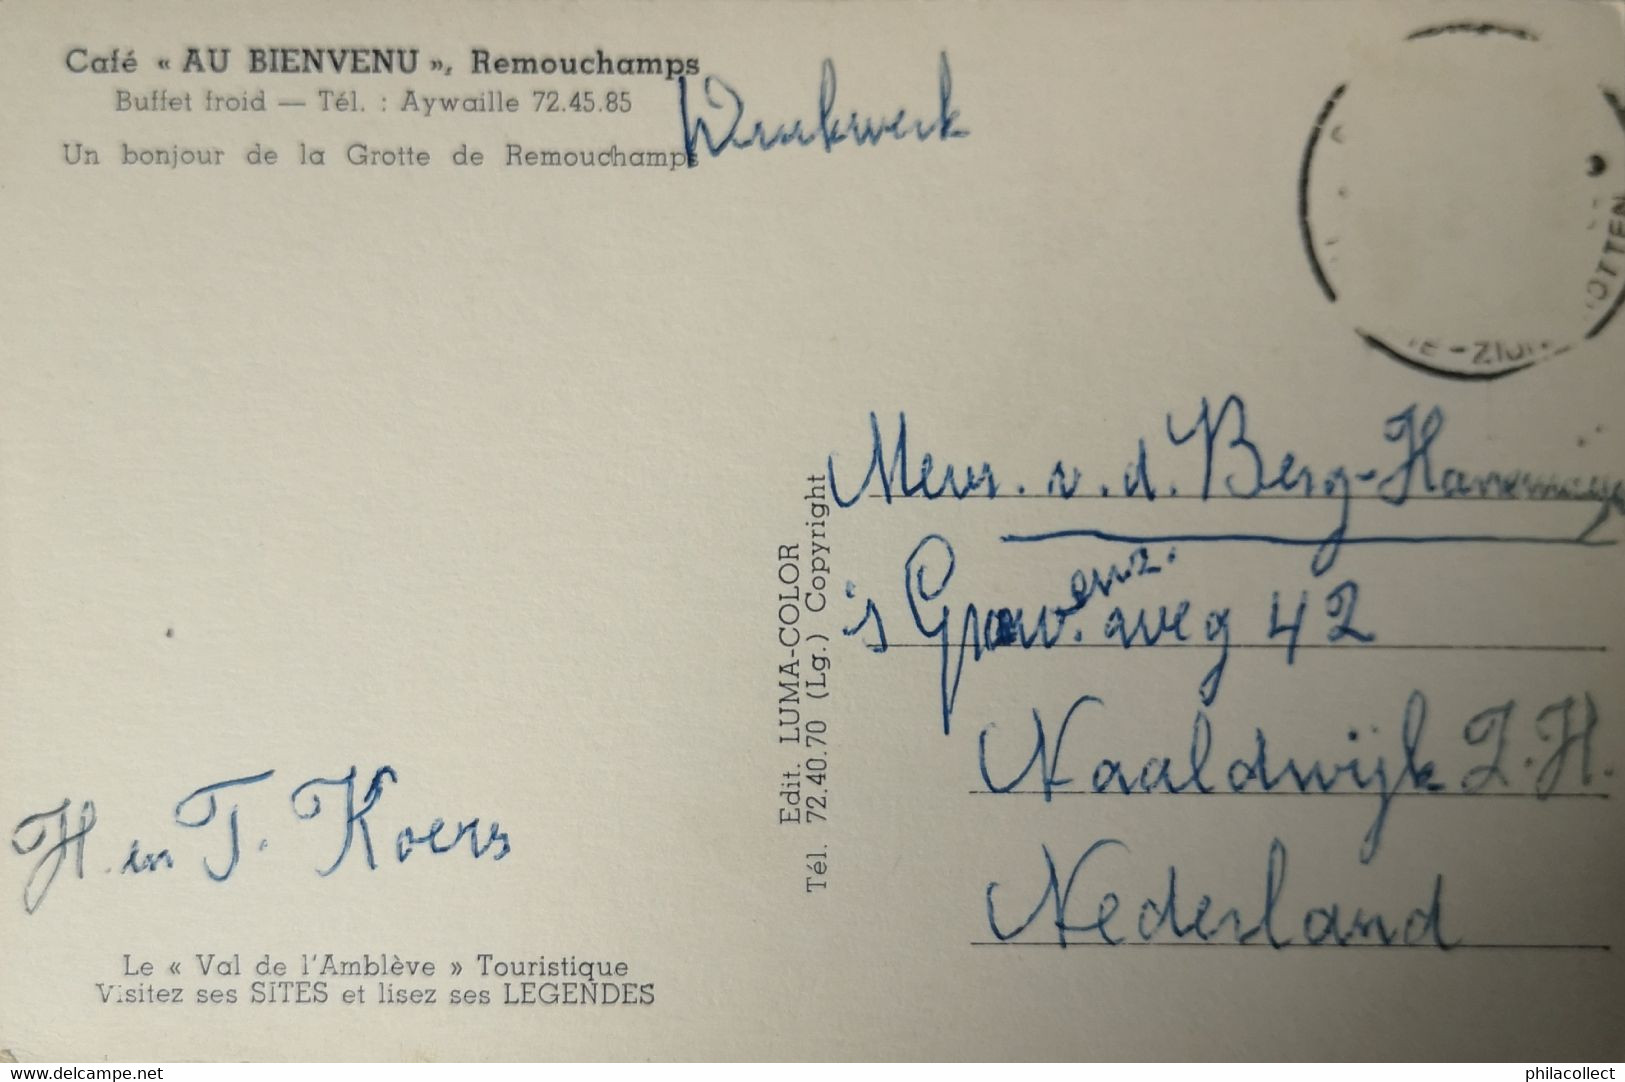 Café « AU BIENVENU », Remouchamps
Buffet froid — Tél. : Aywaille 72.45.85
Un bonjour de la Grotte de Remouchamps
Drukwerk
OTTEN
Mevr. v. d. Berg-Hanemaaye
's Grav. weg 42
enz.
Naaldwijk Z.H.
Nederland
Edit. LUMA-COLOR
Tél. 72.40.70 (Lg.) Copyright
H. en T. Koers
Le « Val de l'Amblève » Touristique
Visitez ses SITES et lisez ses LEGENDES
delcampe.net
philacollect